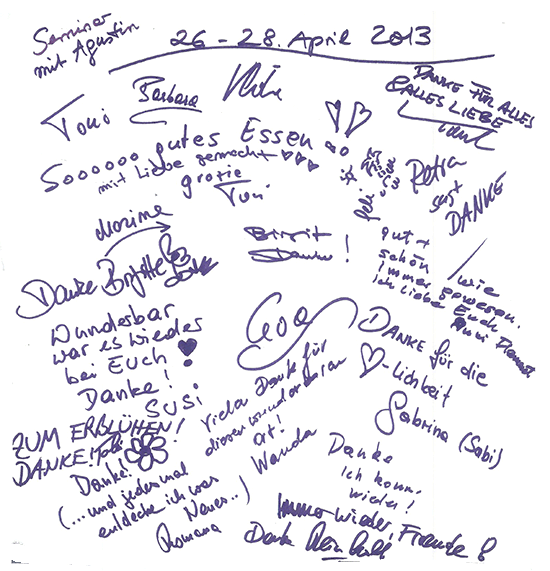 Seminar
mit Agustin
26 - 28. April 2013
Toni
Barbara
DANKE FÜR ALLES
& ALLES LIEBE
Soooooo gutes Essen
mit Liebe gemacht
grazie
Toni
Petra
sagt
DANKE
Birgit
Danke!
gut +
schön
wie
immer gewesen.
ich liebe Euch
Danke Brigitte
Wunderbar
war es wieder
bei Euch
Danke!
SUSI
Goa
DANKE für die
-lichkeit
Sabrina (Sabi)
ZUM ERBLÜHEN!
DANKE!
Vielen Dank für
diesen wunderbaren
Ort!
Wanda
Danke!
(... und jedes mal
entdecke ich was
Neues..)
Romana
Danke
ich komm
wieder!
Immer wieder, Freude!
Danke